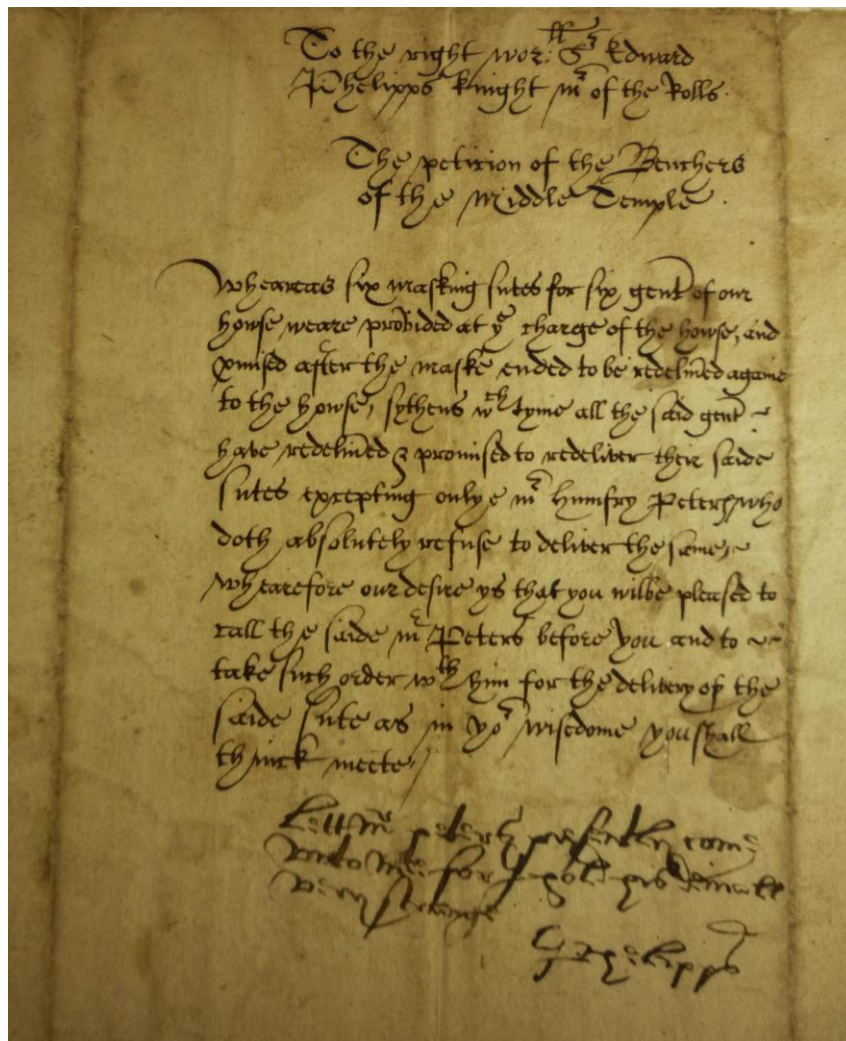 To the right wor:ll Sr Edward
Phelipps knight mr of the Rolls.
The peticion of the Benchers
of the Middle Temple.
Wheareas six masking sutes for six gent of our
howse weare provided at ye charge of the howse, and
pmised after the maske ended to be redelived againe
to the howse, sythens wch tyme all the said gent
have redelived & promised to redeliver their saide
sutes excepting onlye mr Humfry Peters who
doth absolutely refuse to deliver the same,
Whearefore our desire ys that you wilbe pleased to
call the saide mr Peters before you and to
take such order wth him for the delivery of the
saide sute as in yor wisedome you shall
thinck meete
Lett mr peters presently come
unto me for I hold his deniall
very strange
Phelipps